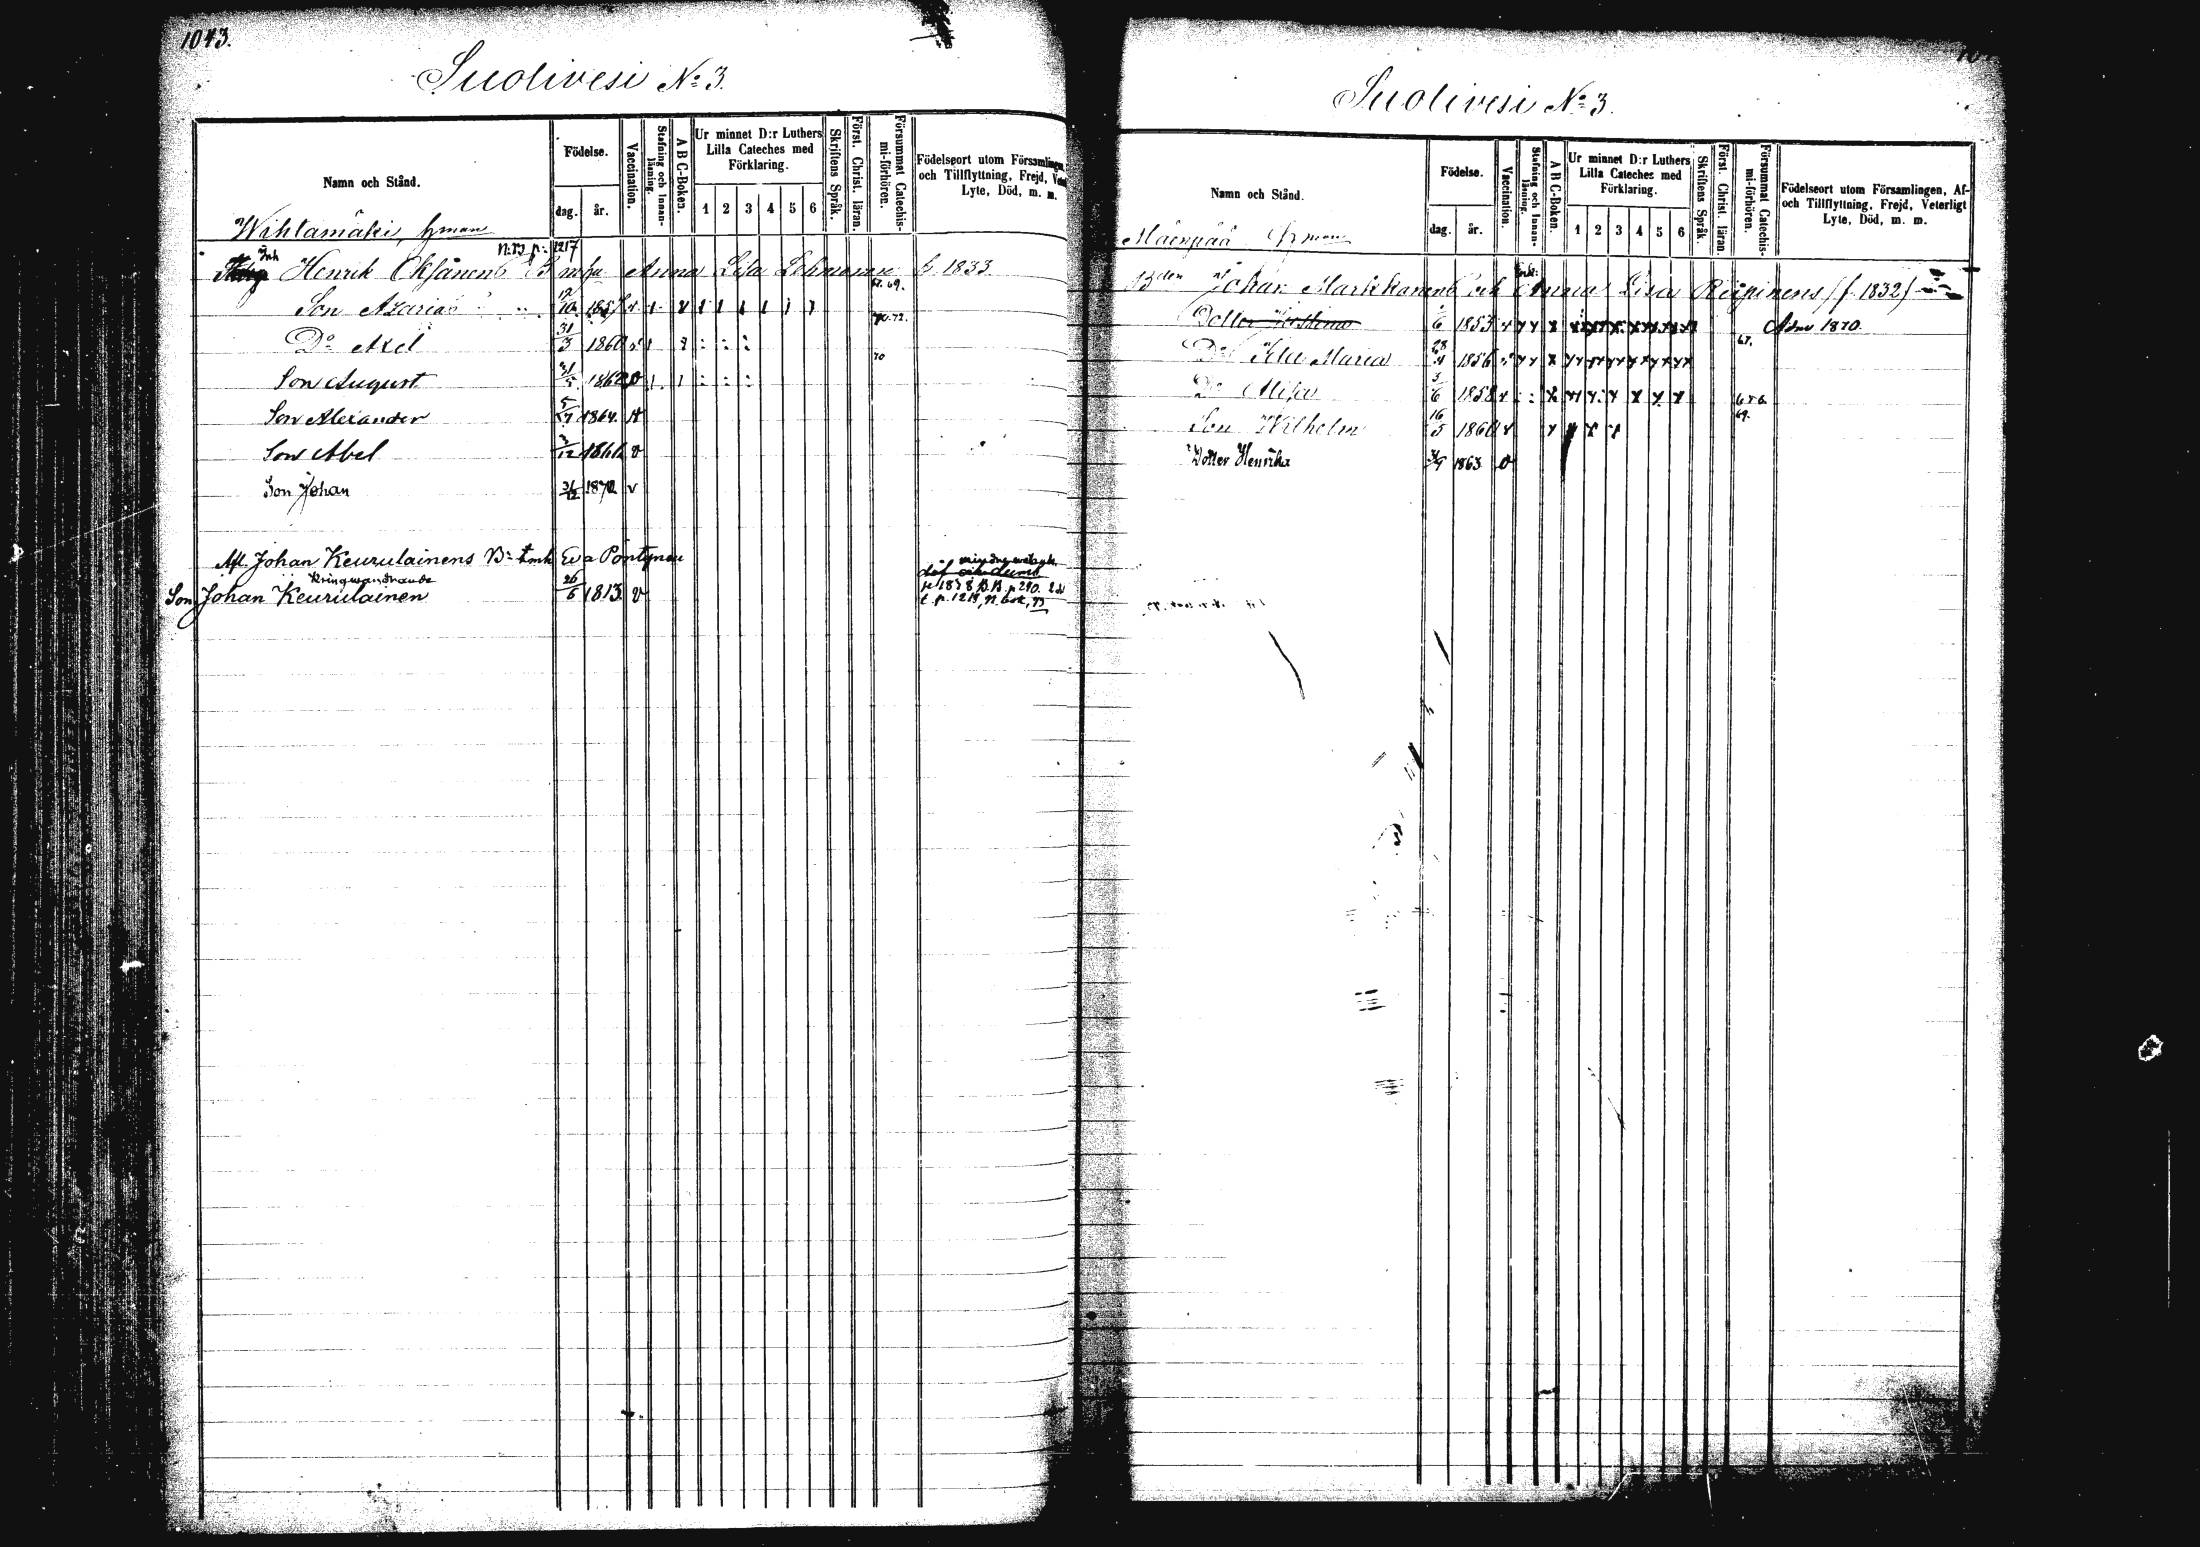 1043.
Suolivesi No 3.
Namn och Stånd.
Födelse.
dag.
år.
Vaccination.
Stafning och Innan-läsning.
A B C-Boken.
Ur minnet D:r Luthers Lilla Cateches med Förklaring.
1 2 3 4 5 6
Skriftens Språk.
Först. Christ. läran.
Försummat Catechis-mi-förhören.
Födelseort utom Församlingen
och Tillflyttning, Frejd,
Lyte, Död, m. m.
Wihtamäki, hman
N:B p: 1217
Inh
Henrik Oksanens Anna Lisa b. 1833
67. 69.
Son Azarias 12/10 1857
70.72.
Do Axel 31/3 1860
70
Son August 31/5 1862 v
Son Alexander 1864
Son Abel 1866 v
Son Johan 31/12 1870 v
Afl. Johan Keurulainens Eva Pöntynen
Kringvandrande
Son Johan Keurulainen 26/6 1813 v
Suolivesi No 3.
Namn och Stånd.
Födelse.
dag.
år.
Vaccination.
Stafning och Innan-läsning.
A B C-Boken.
Ur minnet D:r Luthers Lilla Cateches med Förklaring.
1 2 3 4 5 6
Skriftens Språk.
Först. Christ. läran
Försummat Catechis-mi-förhören.
Födelseort utom Församlingen, Af-
och Tillflyttning, Frejd, Veterligt
Lyte, Död, m. m.
Mäenpää hman
Bden Johan Markkanens och Anna Lisa (f. 1832)
Dotter 6 1853 Adm 1870
67.
Do Ida Maria 28 1856
Do 3/6 1858
Son Wilhelm 16/5 1860
69.
Dotter Henrika 1863 v